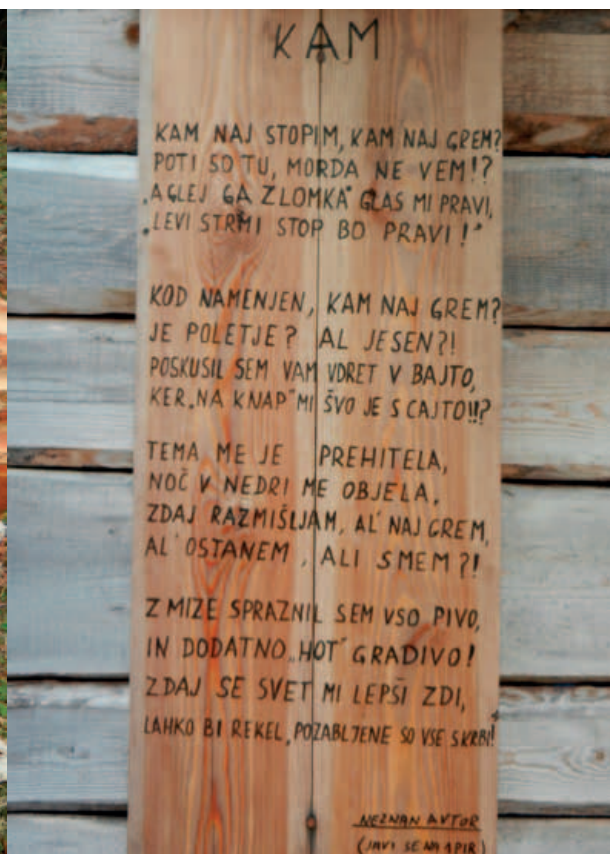 KAM
KAM NAJ STOPIM, KAM NAJ GREM?
POTI SO TU, MORDA NE VEM!?
„A GLEJ GA ZLOMKA" GLAS MI PRAVI,
„LEVI STRMI STOP BO PRAVI!"
KOD NAMENJEN, KAM NAJ GREM?
JE POLETJE? AL JESEN?!
POSKUSIL SEM VAM VDRET V BAJTO,
KER „NA KNAP" MI ŠVO JE S CAJTO!!?
TEMA ME JE PREHITELA,
NOČ V NEDRI ME OBJELA,
ZDAJ RAZMIŠLJAM, AL' NAJ GREM,
AL' OSTANEM, ALI SMEM?!
Z MIZE SPRAZNIL SEM VSO PIVO,
IN DODATNO „HOT" GRADIVO!
ZDAJ SE SVET MI LEPŠI ZDI,
LAHKO BI REKEL, POZABLJENE SO VSE SKRBI!
NEZNAN AVTOR
(JAVI SE NA 1 PIR)